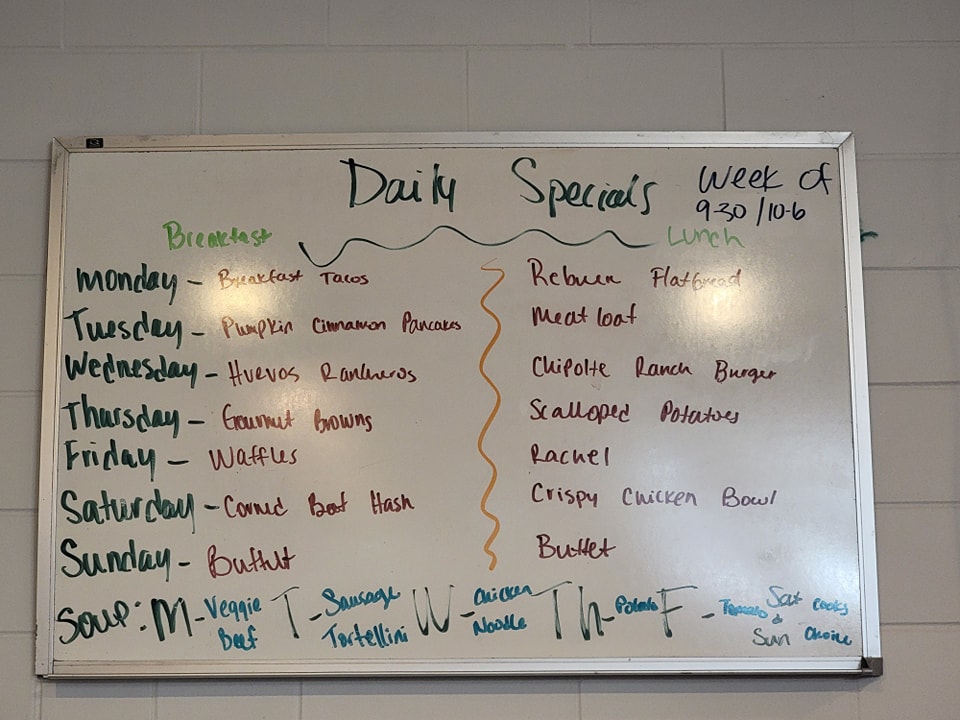 Daily Specials Week of
9-30/10-6
Breakfast Lunch
Monday - Breakfast Tacos Rebuen Flatbread
Tuesday - Pumpkin Cinnamon Pancakes Meatloaf
Wednesday - Huevos Rancheros Chipolte Ranch Burger
Thursday - Gourmut Browns Scalloped Potatoes
Friday - Waffles Rachel
Saturday - Corned Beef Hash Crispy Chicken Bowl
Sunday - Buffet Buffet
Soup: M - Veggie Beef T - Sausage Tortellini W - Chicken Noodle Th - Potato F - Tomato Sat & Sun Cooks Choice